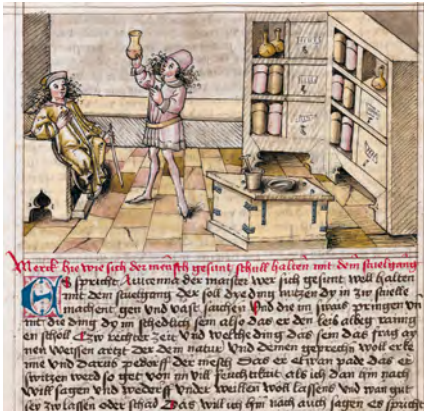 Merck hie wie sich der mensch gesunt schull halten mit dem stuelgang
Es spricht Auicenna der maister wer sich gesunt well halten
mit dem stuelgang der soll dreding nutzen dy in zw stuelle
machent gen und vast sawchen Vnd die im swas pringen vn
mit die ding dy im schedlich sein also das er den leib albeg raynig
en scholl Czw rechter zeit Vnd welche ding das sein das frag ay
nen weissen artzt der dem natur Vnd deinen geprechn woll erke
nne Vnd darus pedorff der mesch Das er etwen pade das er
switzen werd so get von im vill feuchtikait als ich dan im nach
will sagen Vnd wederff Vnder weillen woll lassens Vnd wan gut
sey zw lassen oder schad Das will ich hin nach auch sagen es spricht